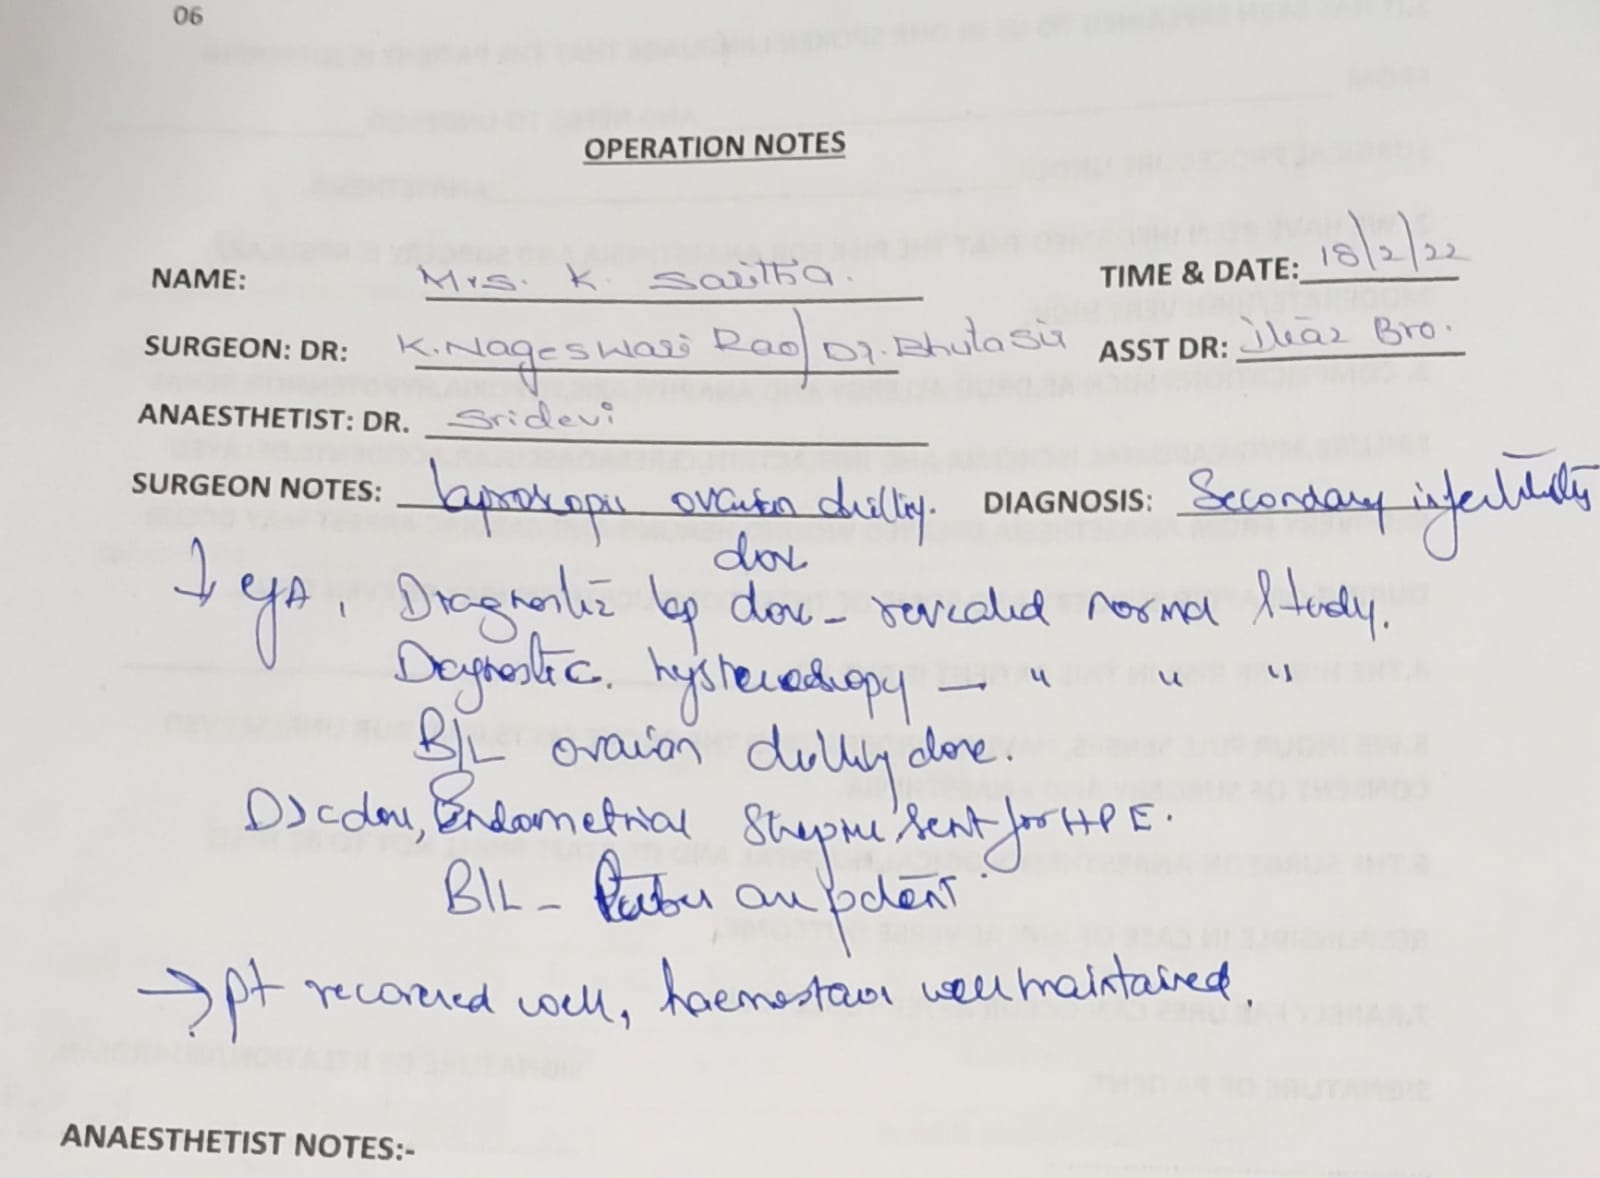 06
OPERATION NOTES
NAME: Mrs. K. Saritha. TIME & DATE: 18/2/22
SURGEON: DR: K. Nageswari Rao/ Dr. ASST DR: Bro.
ANAESTHETIST: DR. Sridevi
SURGEON NOTES: ovarian drilling. DIAGNOSIS: Secondary infertility
done
↓ GA, Diagnostic lap done - revealed normal study.
Diagnostic. hysteroscopy - " " "
B/L ovarian drilling done.
D&C done, Endometrial sent for HPE.
B/L - tubes are patent.
→ pt recovered well, well maintained.
ANAESTHETIST NOTES:-